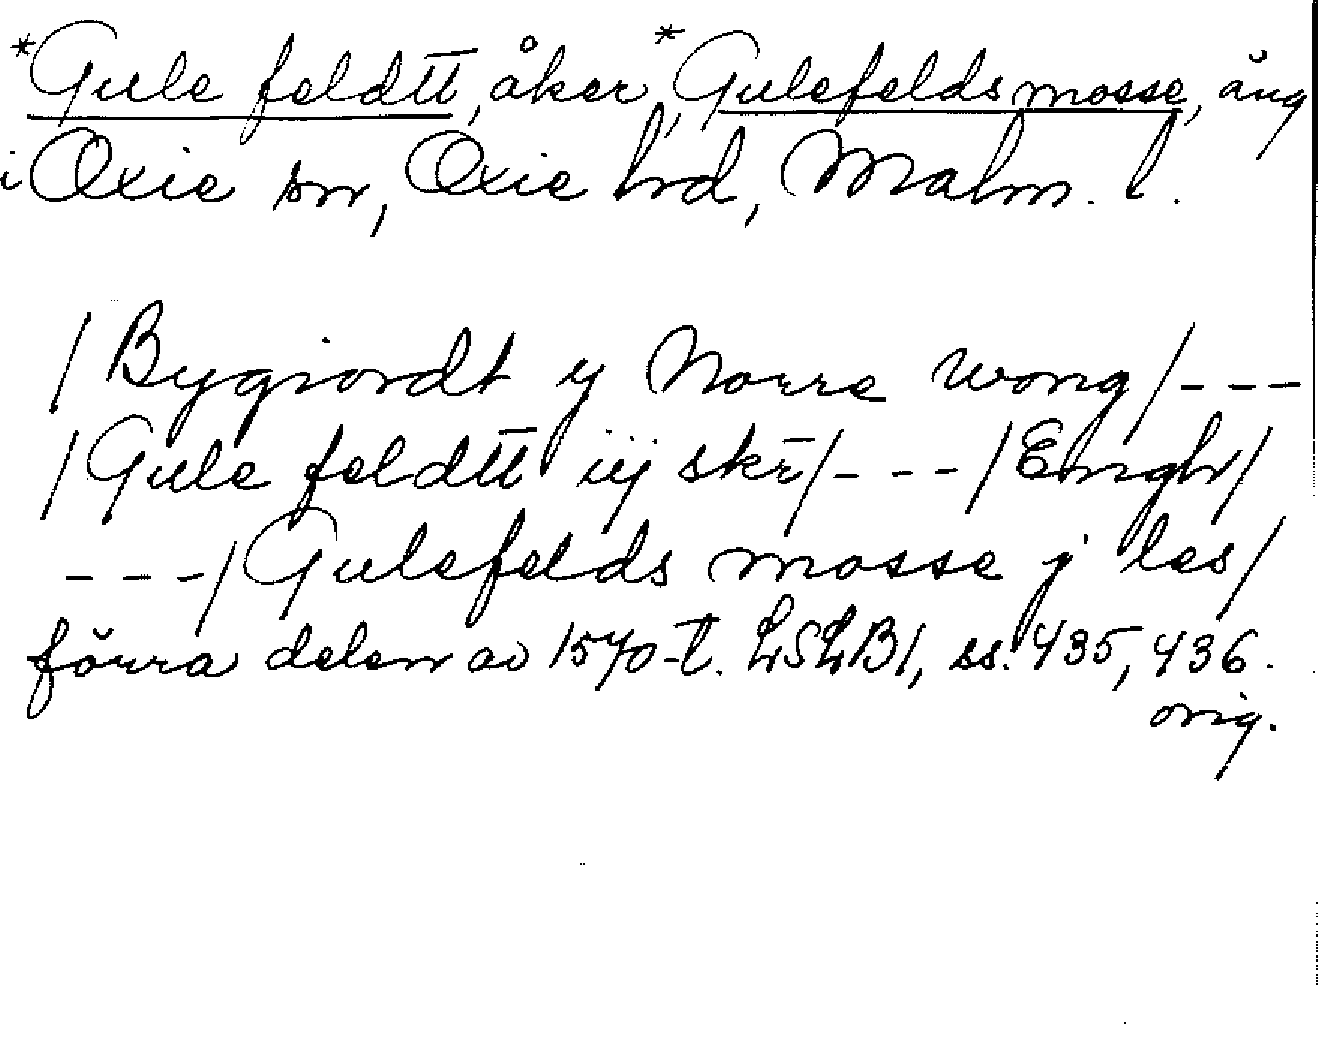 *Gule feldtt, åker, *Gulefelds mosse, äng
i Oxie sn, Oxie hd, Malm. l.
/Bygiordt y Norre wong/---
/Gule feldtt iij skr̄/---/Engh/
---/Gulefelds mosse j les/
förra delen av 1570-t. LSLB1, ss. 435, 436.
orig.